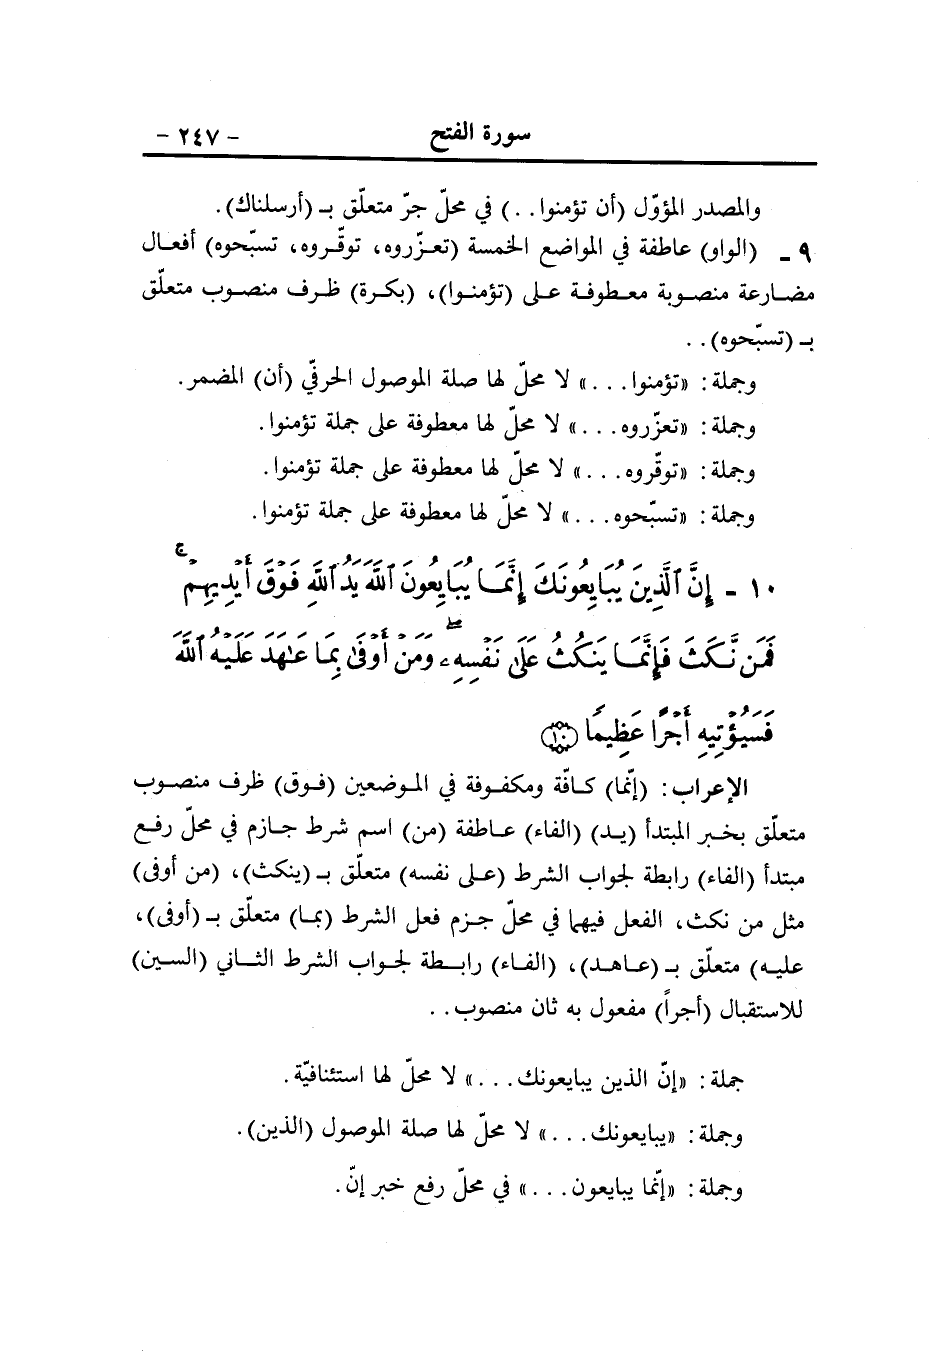 سورة الفتح - ٢٤٧ -
والمصدر المؤوّل (أن تؤمنوا . .) في محلّ جرّ متعلّق بـ (أرسلناك).
٩ - (الواو) عاطفة في المواضع الخمسة (تعزّروه، توقّروه، تسبّحوه) أفعال
مضارعة منصوبة معطوفة على (تؤمنوا)، (بكرة) ظرف منصوب متعلّق
بـ (تسبّحوه) . .
وجملة: «تؤمنوا . . .» لا محلّ لها صلة الموصول الحرفّي (أن) المضمر.
وجملة: «تعزّروه . . .» لا محلّ لها معطوفة على جملة تؤمنوا.
وجملة: «توقّروه . . .» لا محلّ لها معطوفة على جملة تؤمنوا.
وجملة: «تسبّحوه . . .» لا محلّ لها معطوفة على جملة تؤمنوا.
١٠ - إِنَّ ٱلَّذِينَ يُبَايِعُونَكَ إِنَّمَا يُبَايِعُونَ ٱللَّهَ يَدُ ٱللَّهِ فَوْقَ أَيْدِيهِمْ ۚ
فَمَن نَّكَثَ فَإِنَّمَا يَنكُثُ عَلَىٰ نَفْسِهِۦ ۖ وَمَنْ أَوْفَىٰ بِمَا عَٰهَدَ عَلَيْهُ ٱللَّهَ
فَسَيُؤْتِيهِ أَجْرًا عَظِيمًا ﴿١٠﴾
الإعراب: (إنّما) كافّة ومكفوفة في الموضعين (فوق) ظرف منصوب
متعلّق بخبر المبتدأ (يد) (الفاء) عاطفة (من) اسم شرط جازم في محلّ رفع
مبتدأ (الفاء) رابطة لجواب الشرط (على نفسه) متعلّق بـ (ينكث)، (من أوفى)
مثل من نكث، الفعل فيهما في محلّ جزم فعل الشرط (بما) متعلّق بـ (أوفى)،
عليه) متعلّق بـ (عاهد)، (الفاء) رابطة لجواب الشرط الثاني (السين)
للاستقبال (أجراً) مفعول به ثان منصوب . .
جملة: «إنّ الذين يبايعونك . . .» لا محلّ لها استئنافيّة.
وجملة: «يبايعونك . . .» لا محلّ لها صلة الموصول (الذين).
وجملة: «إنّما يبايعون . . .» في محلّ رفع خبر إنّ.